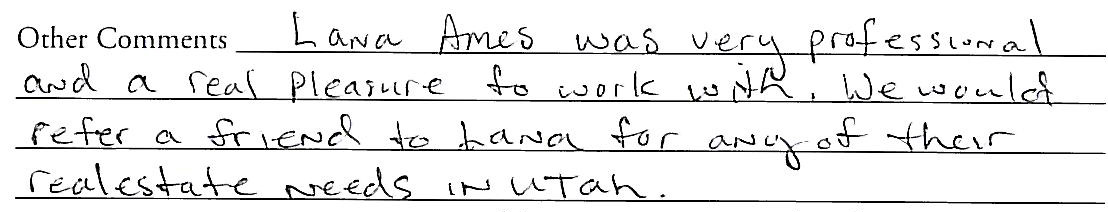 Other Comments Lana Ames was very professional
and a real pleasure to work with. We would
refer a friend to Lana for any of their
realestate needs in Utah.